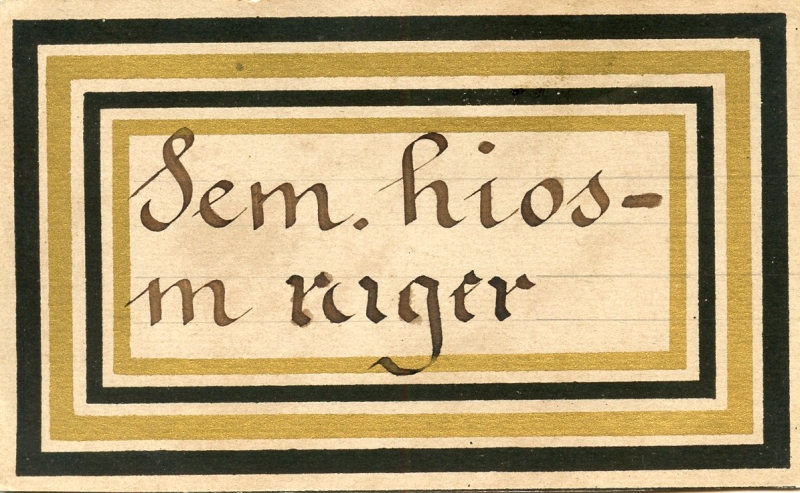 Sem. hios-
m niger